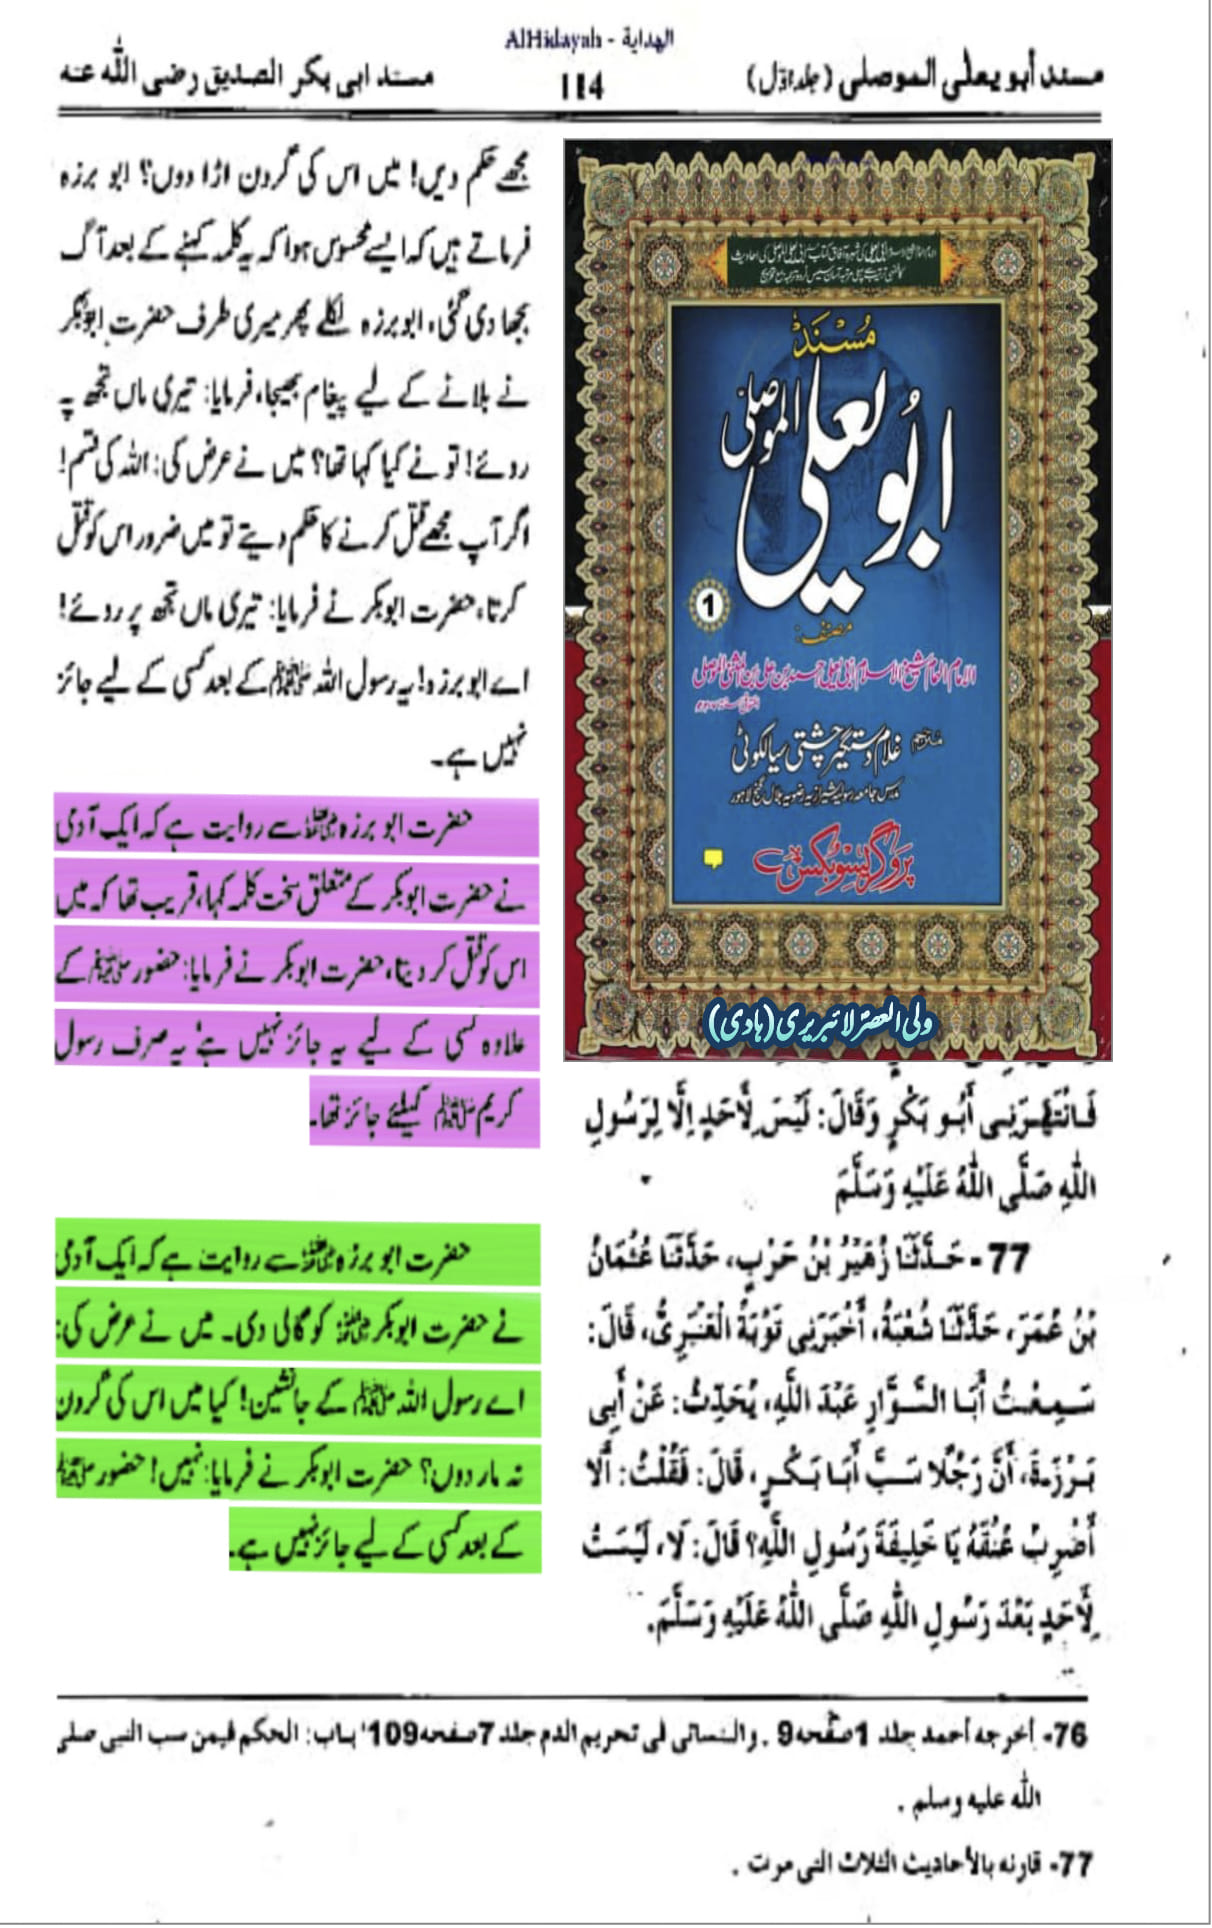 AlHidayah - الهداية
مسند أبو يعلى الموصلى (جلد اوّل)
114
مسند ابی بکر الصدیق رضی اللّٰه عنه
مجھے حکم دیں! میں اس کی گردن اڑا دوں؟ ابو برزہ
فرماتے ہیں کہ ایسے محسوس ہوا کہ یہ کلمہ کہنے کے بعد آگ
بجھا دی گئی، ابو برزہ نکلے پھر میری طرف حضرت ابوبکر
نے بلانے کے لیے پیغام بھیجا، فرمایا: تیری ماں تجھ پہ
روئے! تو نے کیا کہا تھا؟ میں نے عرض کی: اللہ کی قسم!
اگر آپ مجھے قتل کرنے کا حکم دیتے تو میں ضرور اس کو قتل
کرتا، حضرت ابوبکر نے فرمایا: تیری ماں تجھ پر روئے!
اے ابو برزہ! یہ رسول اللہ ﷺ کے بعد کسی کے لیے جائز
نہیں ہے۔
حضرت ابو برزہ رضی اللہ عنہ سے روایت ہے کہ ایک آدمی
نے حضرت ابوبکر کے متعلق سخت کلمہ کہا، قریب تھا کہ میں
اس کو قتل کر دیتا، حضرت ابوبکر نے فرمایا: حضور ﷺ کے
علاوہ کسی کے لیے یہ جائز نہیں ہے، یہ صرف رسول
کریم ﷺ کیلئے جائز تھا۔
حضرت ابو برزہ رضی اللہ عنہ سے روایت ہے کہ ایک آدمی
نے حضرت ابوبکر رضی اللہ عنہ کو گالی دی۔ میں نے عرض کی:
اے رسول اللہ ﷺ کے جانشین! کیا میں اس کی گردن
نہ مار دوں؟ حضرت ابوبکر نے فرمایا: نہیں! حضور ﷺ
کے بعد کسی کے لیے جائز نہیں ہے۔
مُسْنَد
ابُو يعلى الموصلى
1
مصنف:
غلام دستگیر چشتی سیالکوٹی
پروگریسو بکس
ولی العصر لائبریری (ہادی)
فَانْتَهَرَنِى أَبُو بَكْرٍ وَقَالَ: لَيْسَ لِأَحَدٍ إِلَّا لِرَسُولِ
اللّٰهِ صَلَّى اللّٰهُ عَلَيْهِ وَسَلَّمَ
77- حَدَّثَنَا زُهَيْرُ بْنُ حَرْبٍ، حَدَّثَنَا عُثْمَانُ
بْنُ عُمَرَ، حَدَّثَنَا شُعْبَةُ، أَخْبَرَنِى تَوْبَةُ الْعَنْبَرِىُّ، قَالَ:
سَمِعْتُ أَبَا السَّوَّارِ عَبْدَ اللّٰهِ، يُحَدِّثُ: عَنْ أَبِى
بَرْزَةَ، أَنَّ رَجُلًا سَبَّ أَبَا بَكْرٍ، قَالَ: فَقُلْتُ: أَلَا
أَضْرِبُ عُنُقَهُ يَا خَلِيفَةَ رَسُولِ اللّٰهِ؟ قَالَ: لَا، لَيْسَتْ
لِأَحَدٍ بَعْدَ رَسُولِ اللّٰهِ صَلَّى اللّٰهُ عَلَيْهِ وَسَلَّمَ.
76- أخرجه أحمد جلد 1صفحه9 . والنسائى فى تحريم الدم جلد 7صفحه109' باب: الحكم فيمن سب النبى صلى
الله عليه وسلم .
77- قارنه بالأحاديث الثلاث التى مرت .